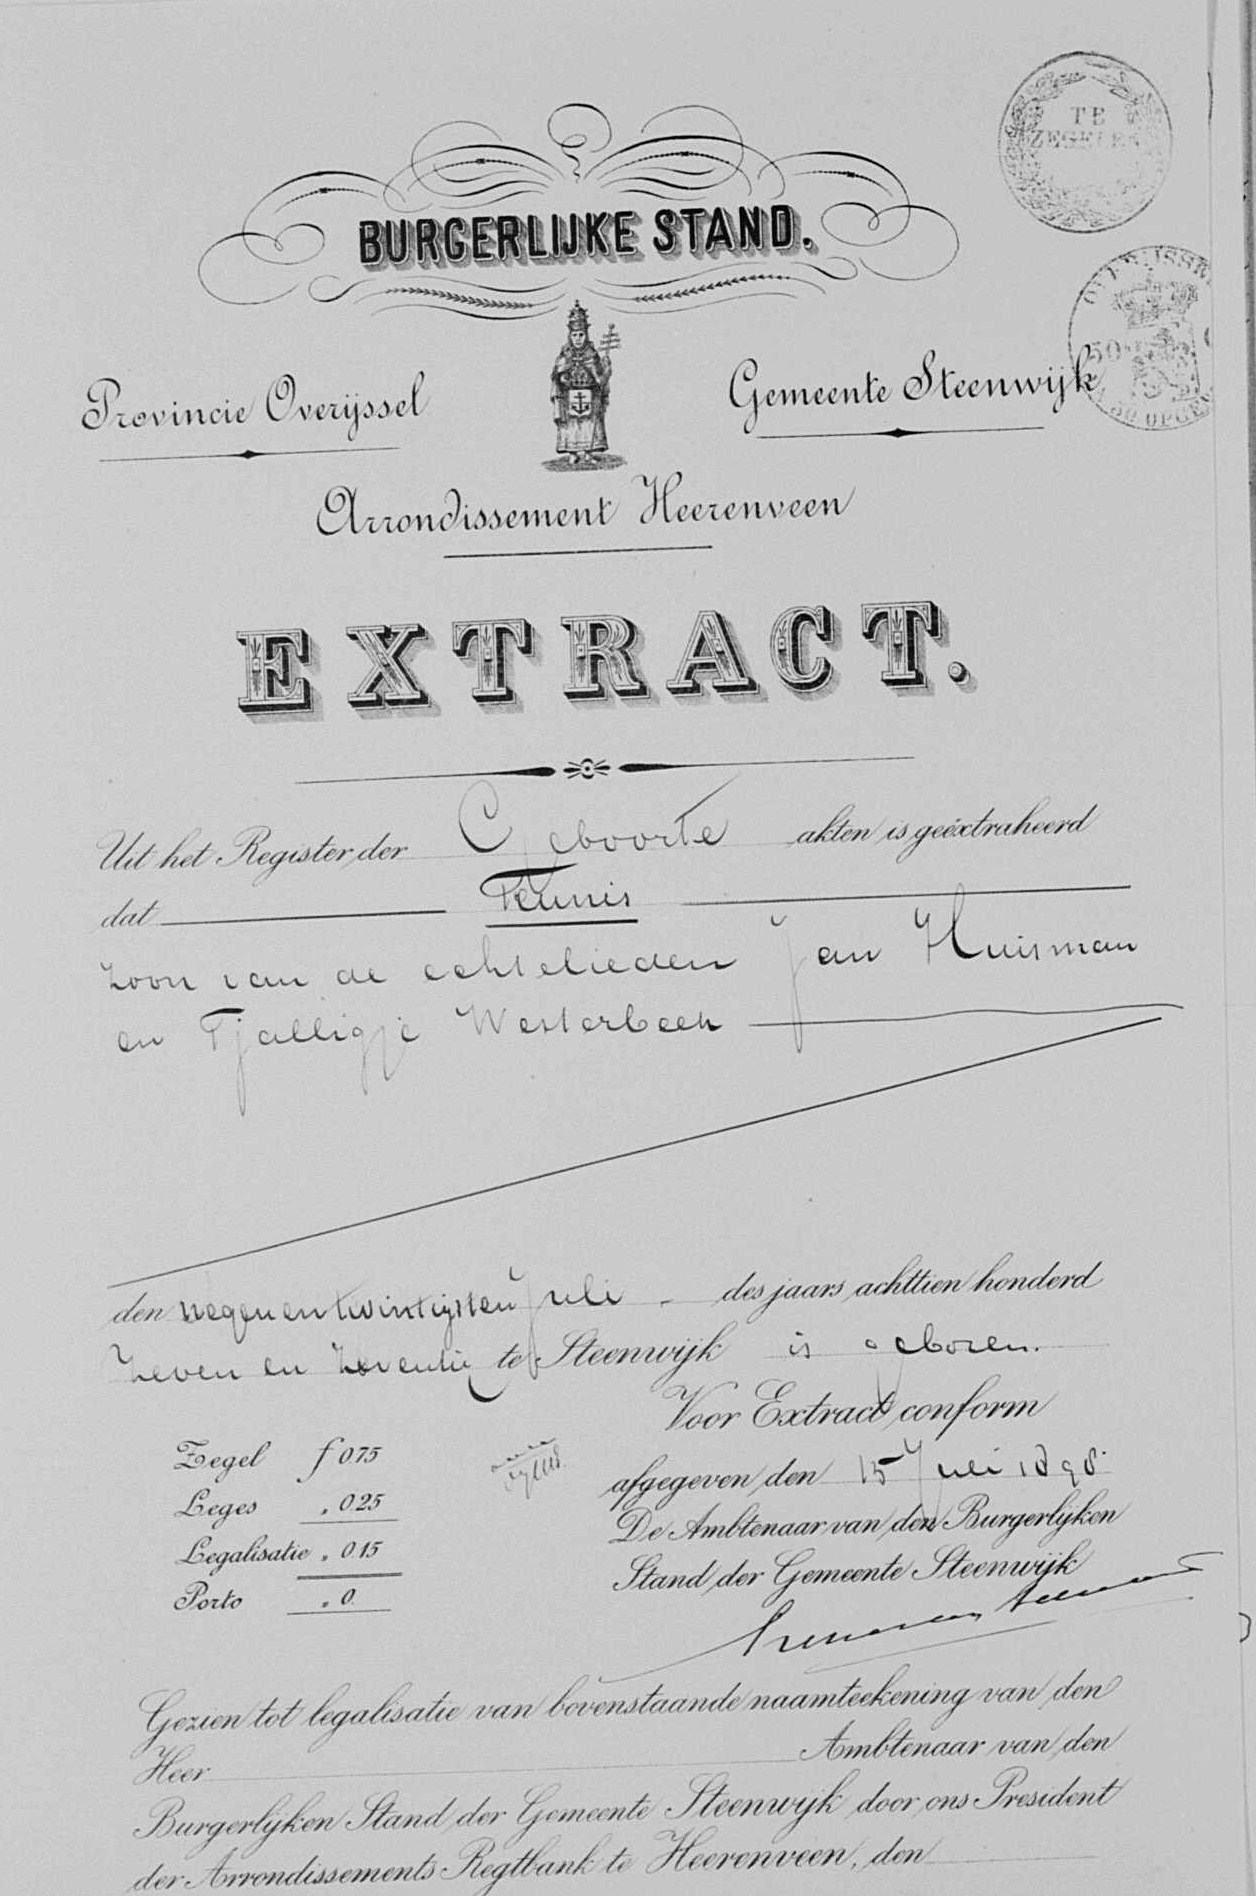 TE
ZEGELEN
BURGERLIJKE STAND.
OVERIJSSEL
50
Provincie Overijssel
Gemeente Steenwijk
Arrondissement Heerenveen
EXTRACT.
Uit het Register der Geboorte akten is geëxtraheerd
dat Teunis
zoon van de echtelieden Jan Huisman
en Tjalligje Westerbeek
den negenentwintigsten Juli des jaars achttien honderd
Zeven en Zeventig te Steenwijk is geboren.
Voor Extract conform
Zegel f 0 75
afgegeven den 15 Juli 1898.
Leges „ 0 25
De Ambtenaar van den Burgerlijken
Legalisatie „ 0 15
Stand der Gemeente Steenwijk
Porto „ 0
Gezien tot legalisatie van bovenstaande naamteekening van den
Heer Ambtenaar van den
Burgerlijken Stand der Gemeente Steenwijk door ons President
der Arrondissements Regtbank te Heerenveen, den